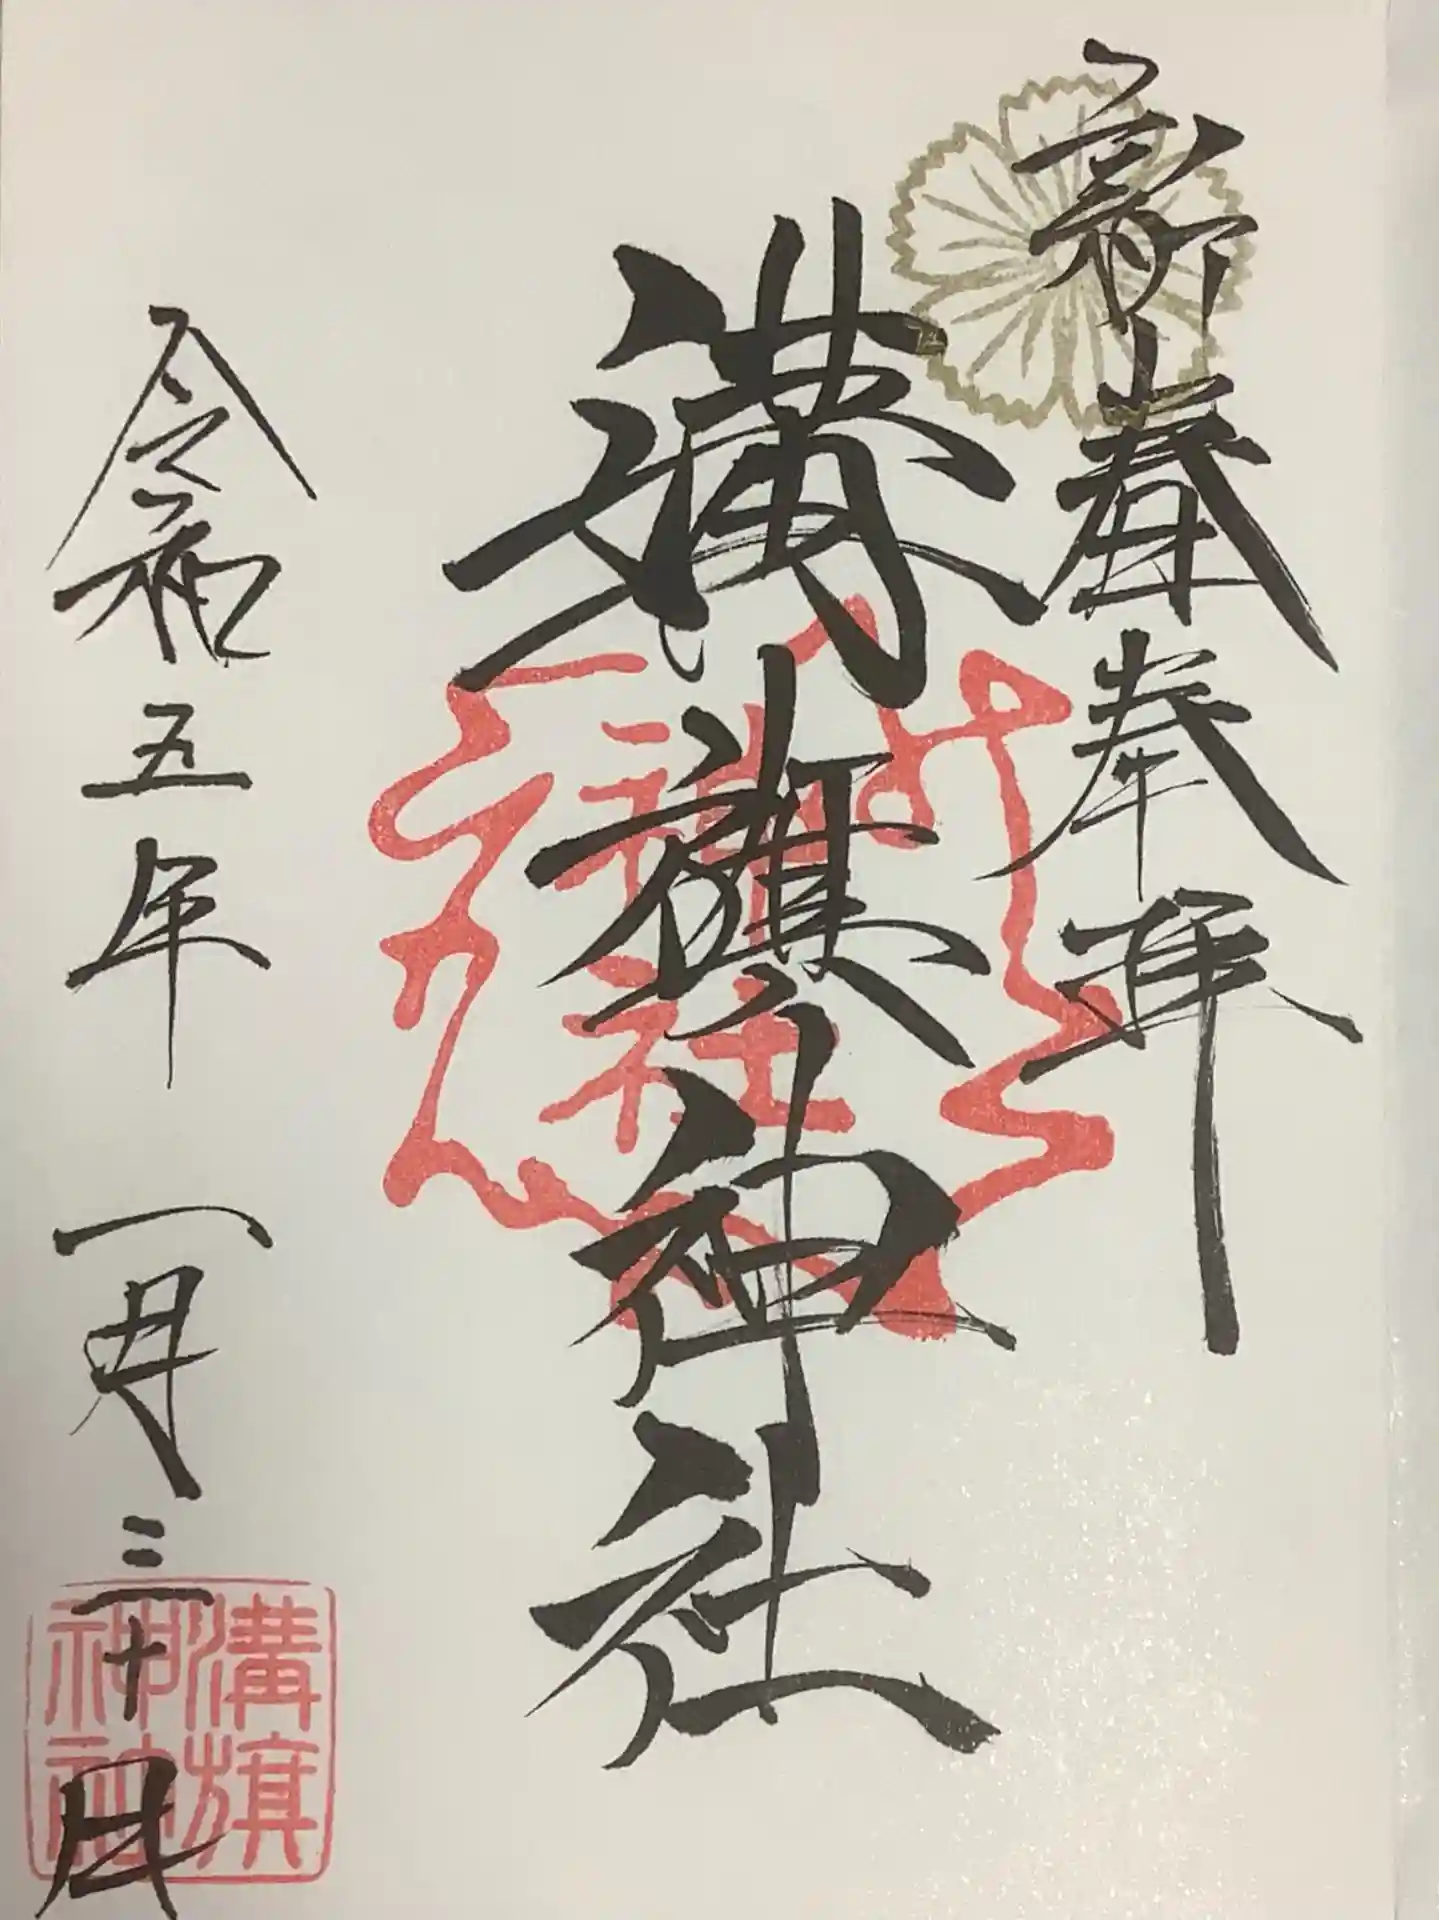 新春奉拝
溝旗神社
令和五年一月三十日
神社
溝旗
神社